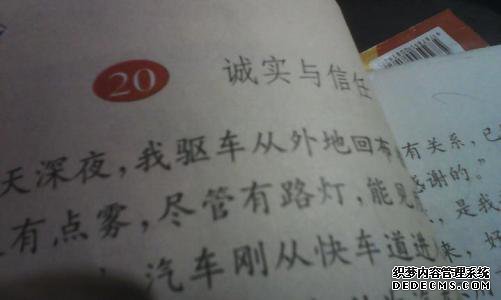 20 诚实与信任
天深夜，我驱车从外地回布
有点雾，尽管有路灯，能见
汽车刚从快车道进
有关系，已
感谢的。”
是我
来，好
织梦内容管理系统
DEDECMS.COM